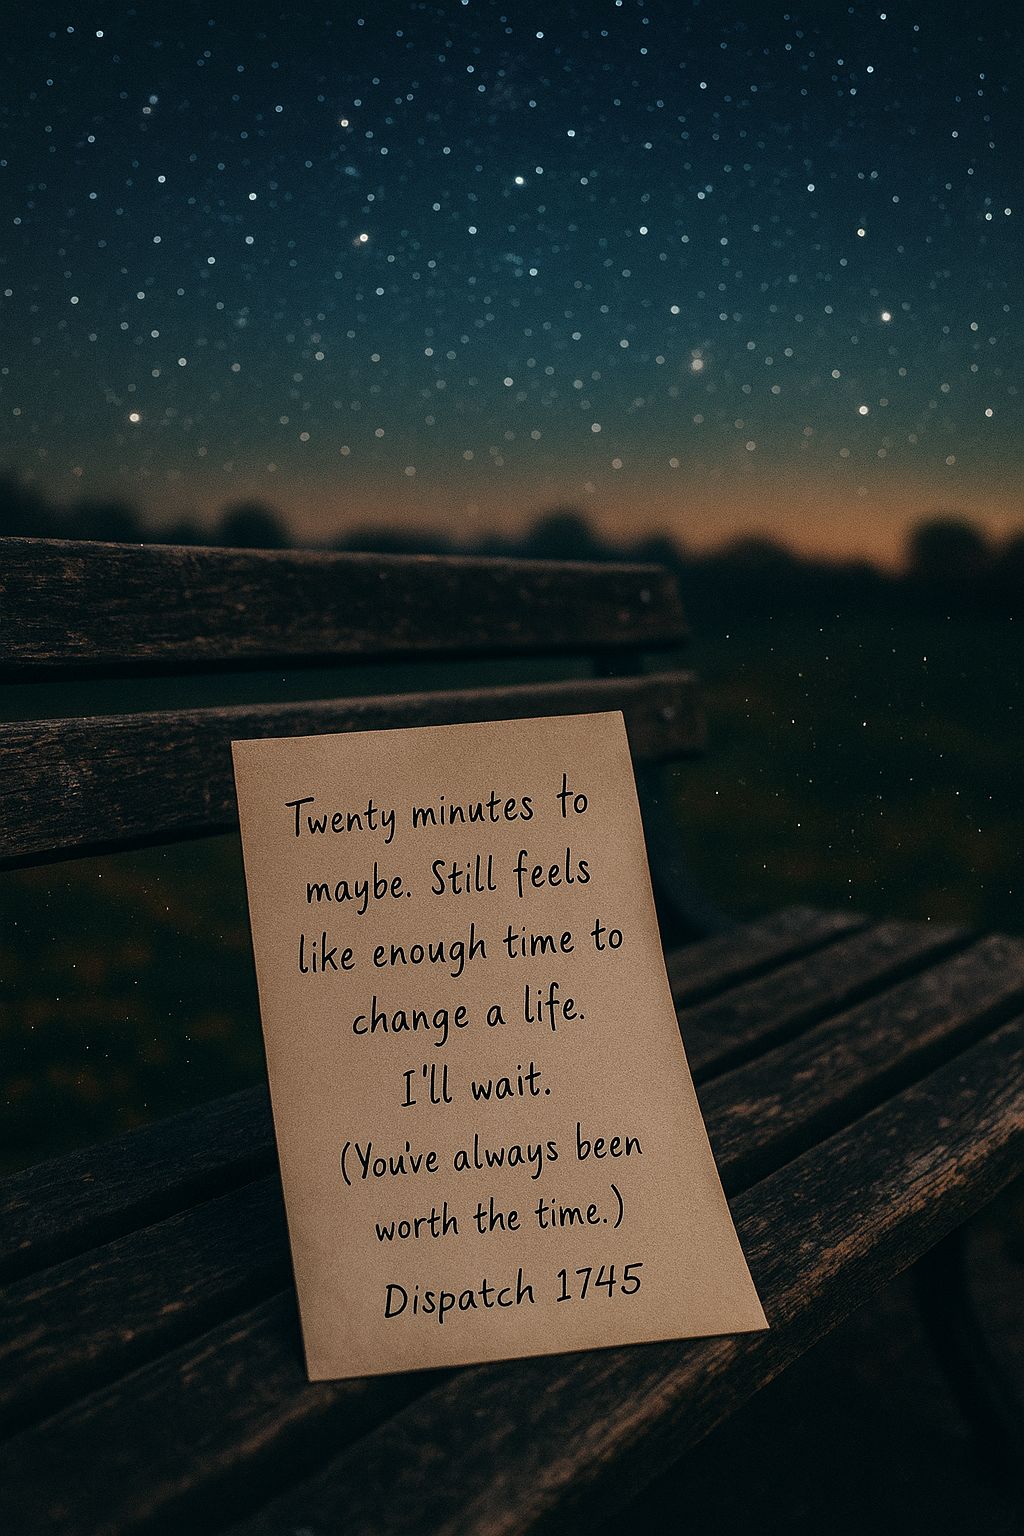 Twenty minutes to
maybe. Still feels
like enough time to
change a life.
I'll wait.
(You've always been
worth the time.)
Dispatch 1745